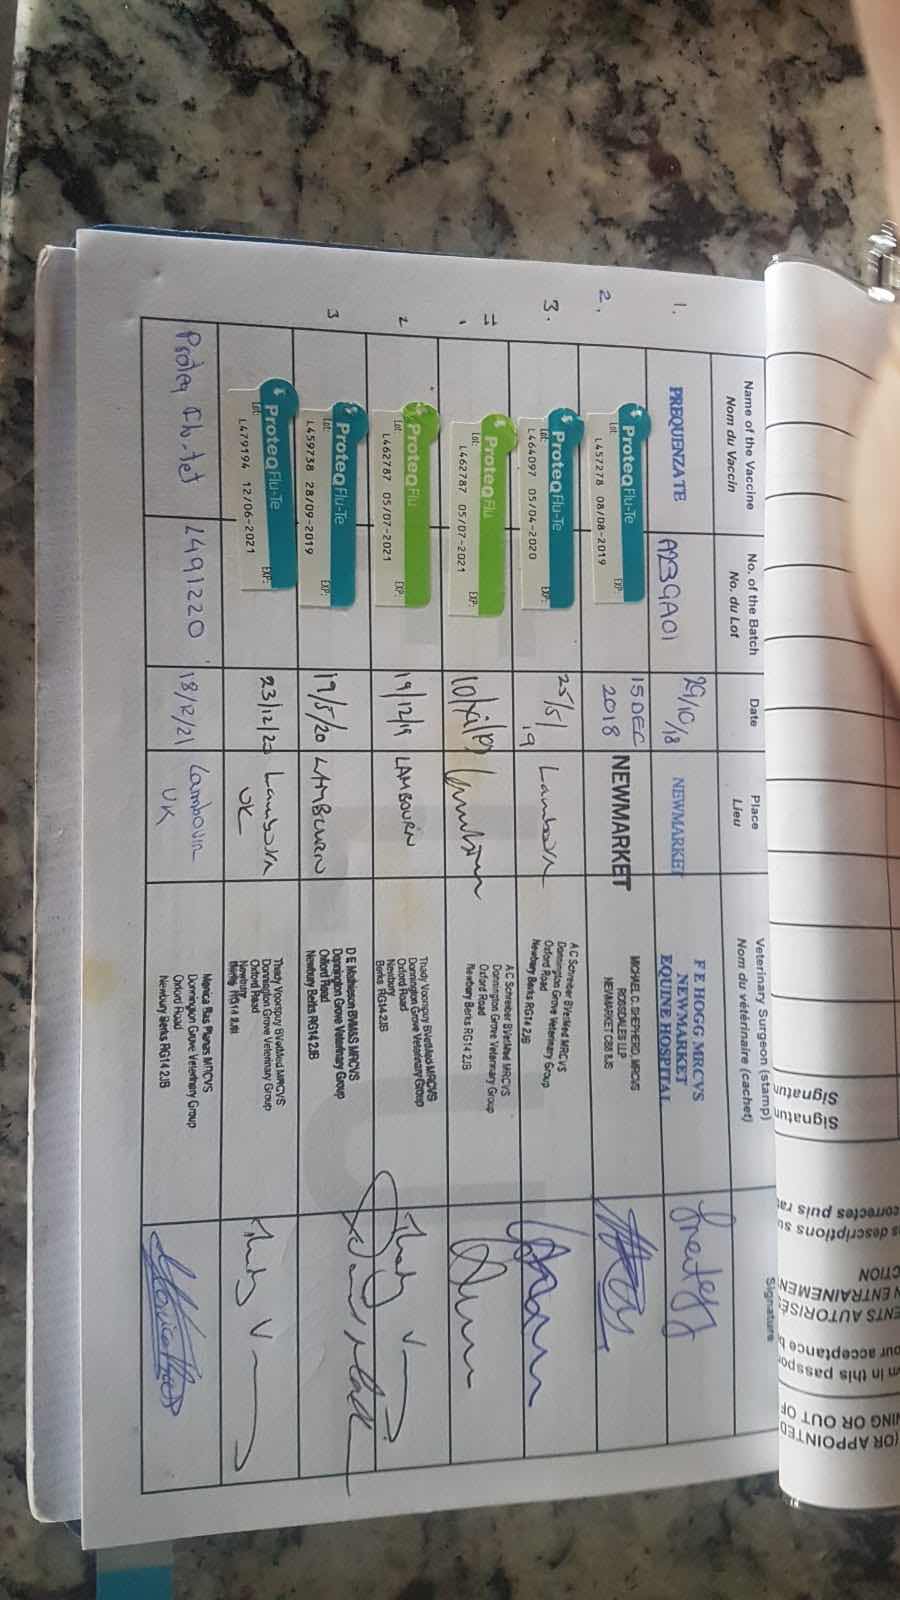 Name of the Vaccine
Nom du Vaccin
No. of the Batch
No. du Lot
Date
Place
Lieu
Veterinary Surgeon (stamp)
Nom du vétérinaire (cachet)
Signature
1.
PREQUENZATE
A293GA01
29/10/18
NEWMARKET
F E HOGG MRCVS
NEWMARKET
EQUINE HOSPITAL
2.
ProteqFlu-Te
Lot: EXP:
L457278 08/08-2019
15 DEC
2018
NEWMARKET
MICHAEL C. SHEPHERD, MRCVS
ROSSDALES LLP
NEWMARKET CB8 8JS
3.
ProteqFlu-Te
Lot: EXP:
L464097 05/04-2020
25/5/19
Lambourn
A C Schreiber BVetMed MRCVS
Donnington Grove Veterinary Group
Oxford Road
Newbury Berks RG14 2JB
ProteqFlu
Lot: EXP:
L462787 05/07-2021
Lambourn
A C Schreiber BVetMed MRCVS
Donnington Grove Veterinary Group
Oxford Road
Newbury Berks RG14 2JB
2
ProteqFlu
Lot: EXP:
L462787 05/07-2021
19/12/19
LAMBOURN
Thady Vroospuy BVetMed MRCVS
Donnington Grove Veterinary Group
Oxford Road
Newbury
Berks RG14 2JB
3
ProteqFlu-Te
Lot:
L459738 28/09-2019
19/5/20
LAMBOURN
D E BVM&S MRCVS
Donnington Grove Veterinary Group
Oxford Road
Newbury Berks RG14 2JB
ProteqFlu-Te
Lot: EXP:
L479194 12/06-2021
23/12/20
Lambourn
UK
Thady Vroospuy BVetMed MRCVS
Donnington Grove Veterinary Group
Oxford Road
Newbury
Berks RG14 2JB
Proteq Flu-tet
L491220
18/12/21
Lambourn
UK
Monica Planas MRCVS
Donnington Grove Veterinary Group
Oxford Road
Newbury Berks RG14 2JB
Signatur
Signatur
correctes puis
descriptions
CTION
N ENTRAINEMEN
ENTS AUTORISÉ
our acceptance
m in this passpo
NING OR OUT OF
(OR APPOINTED